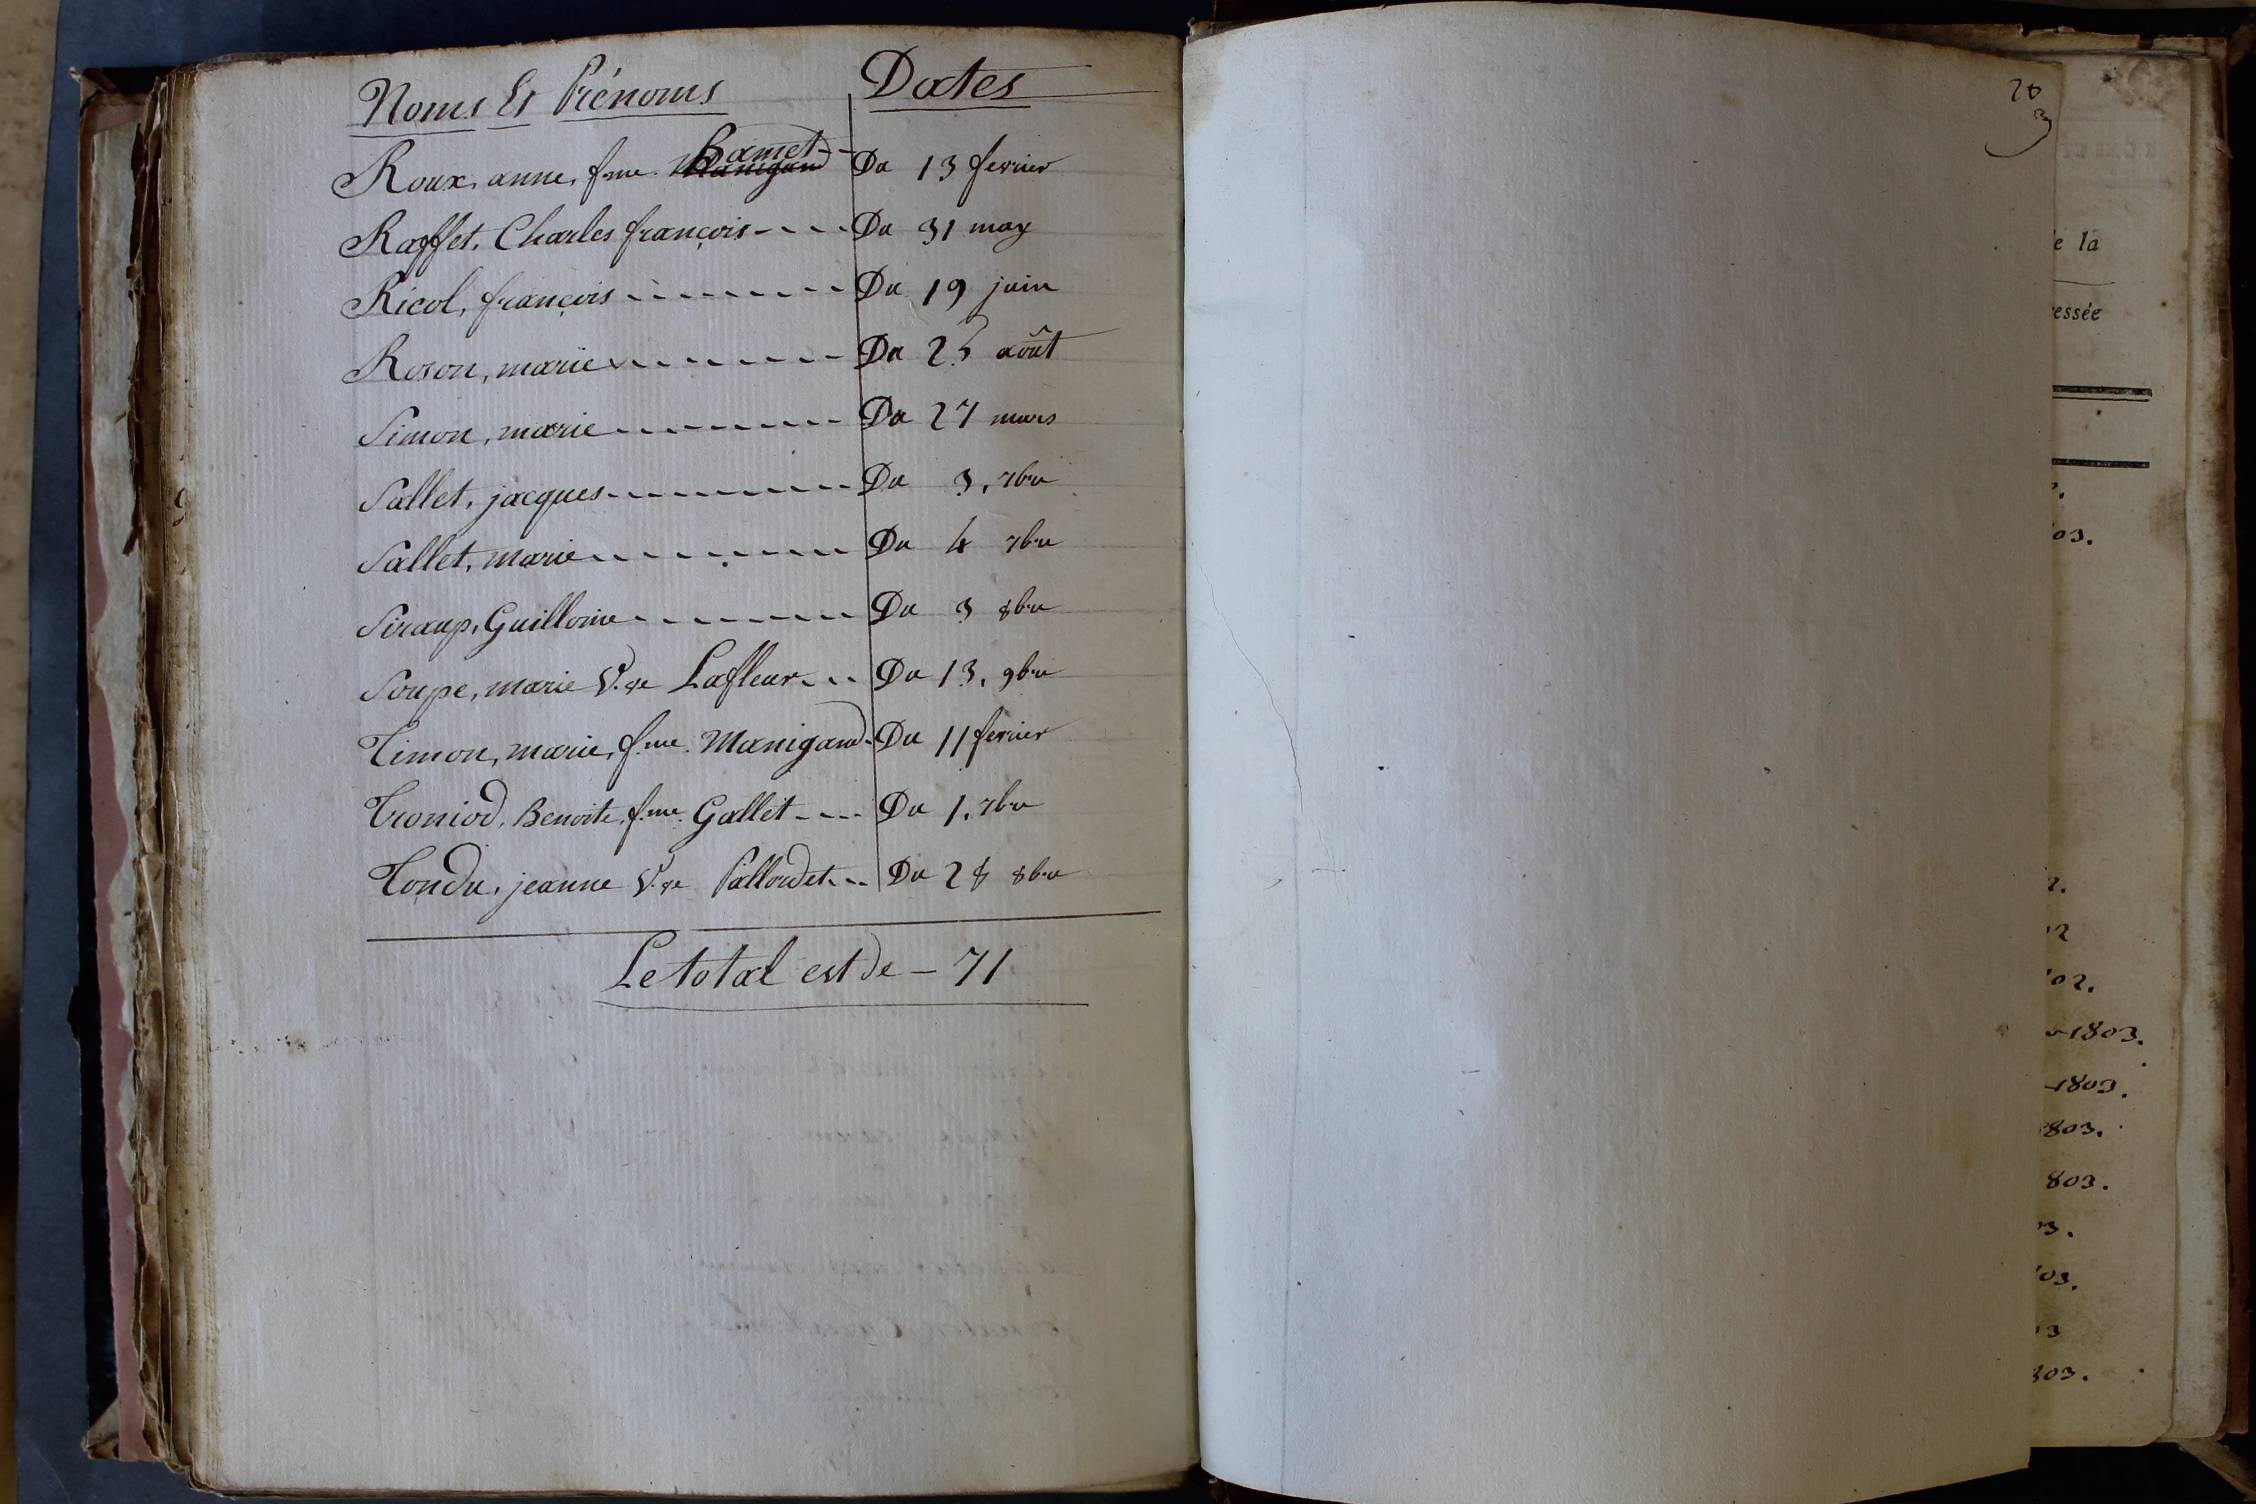 Noms Et Prénoms Dates
Roux, anne, f.me Bamet Du 13 fevrier
Raffet, Charles françois Du 31 may
Ricol, françois Du 19 juin
Roson, marie Du 25 août
Simon, marie Du 27 mars
Sallet, jacques Du 3, 7bre
Sallet, marie Du 4 7bre
Siraup, Guillome Du 3 8bre
Soupe, marie V.ve Lafleur Du 13, 9bre
Timon, marie, f.me Manigand Du 11 fevrier
Troniod, Benoite, f.me Gallet Du 1, 7bre
Tondu, jeanne V.ve Pallordet Du 28 8bre
Le total est de - 71
e la
essée
03.
2.
12
02.
1803.
1803.
803.
803.
3.
03.
3
803.